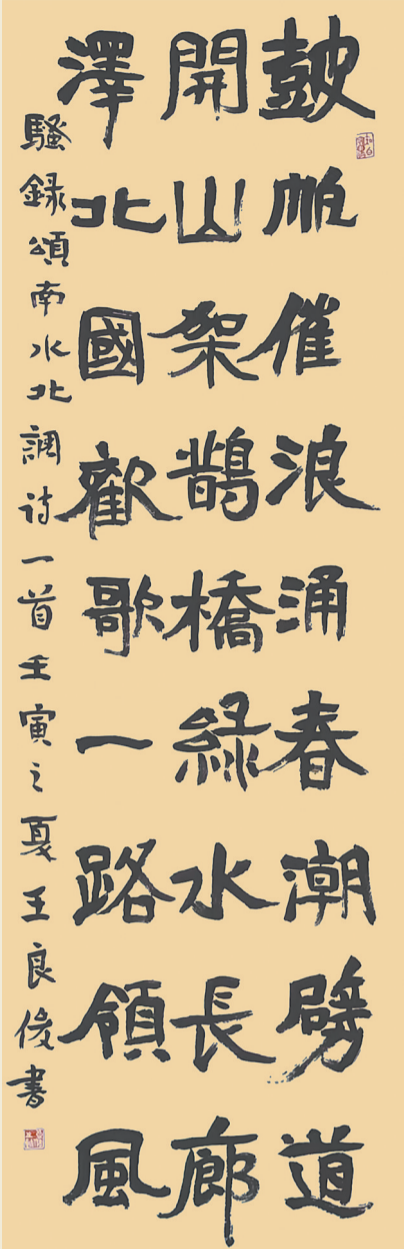 鼓帆催浪涌春潮劈道
開山架鹊橋緑水長廊
澤北國歡歌一路領風
騷録頌南水北調诗一首壬寅之夏王良俊書